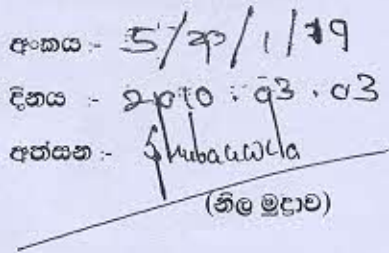 අංකය :- 5/20/1/19
දිනය :- 2010.03.03
අත්සන :-
(නිල මුද්‍රාව)